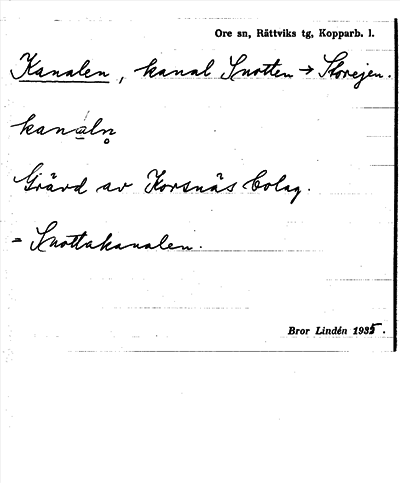 Ore sn, Rättviks tg, Kopparb. l.
Kanalen, kanal Snotten → Storejen.
kanaln̥
Grävd av Korsnäs bolag.
= Snottakanalen.
Bror Lindén 1935.